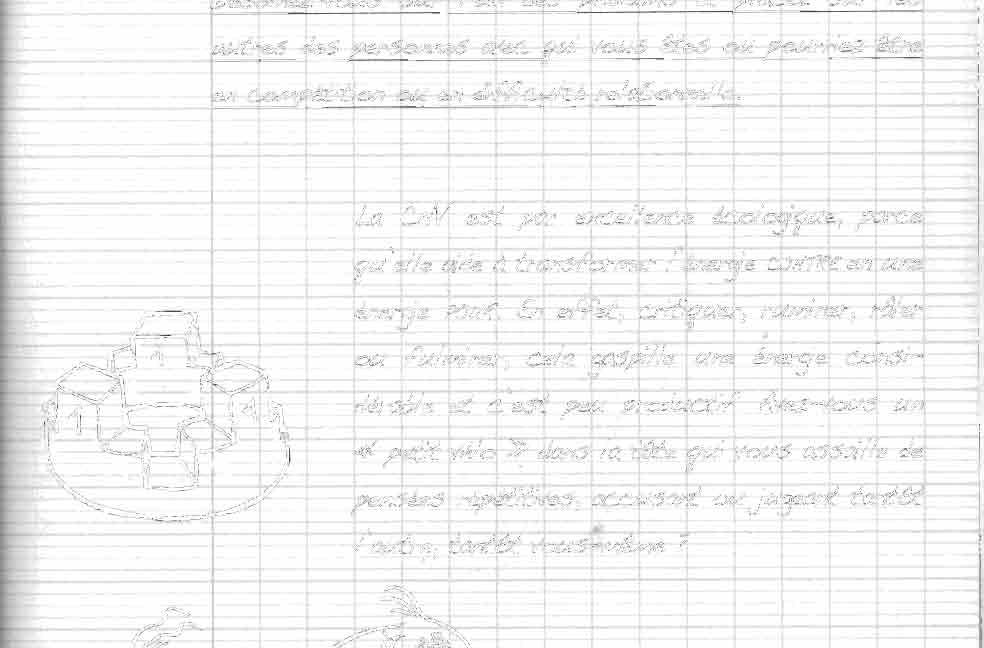 autres des personnes avec qui vous êtes ou pourriez être
en compétition ou en difficulté relationnelle.
La CNV est par excellence écologique, parce
qu'elle aide à transformer l'énergie CONTRE en une
énergie POUR. En effet, critiquer, ruminer, râler
ou fulminer, cela gaspille une énergie consi-
dérable et c'est peu productif. Avez-vous un
« petit vélo » dans la tête qui vous assaille de
pensées répétitives, accusant ou jugeant tantôt
l'autre, tantôt vous-même ?